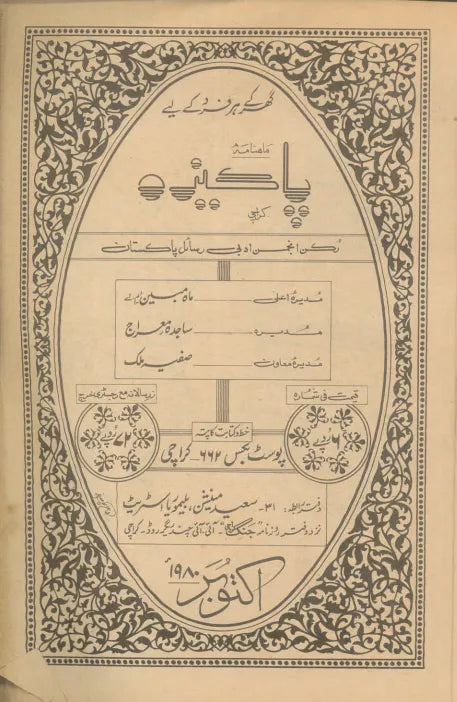 گھر کے ہر فرد کے لیے
ماھنامہ
پاکیزہ
کراچی
رُکن انجمن ادبی رسائل پاکستان
مدیرۂ اعلیٰ ـــــــ ماہ مبین ایم اے
مدیرہ ـــــــ ساجدہ معراج
مدیرۂ معاون ـــــــ صفیہ ملک
قیمت فی شمارہ
۶ روپے
زرِ سالانہ مع رجسٹری خرچ
۷۲ روپے
خط و کتابت کا پتہ
پوسٹ بکس ۶۶۲ ۔ کراچی
دفتر رابطہ : ۳۱ ۔ سعید مینشن ، بلیموریا اسٹریٹ
نزد دفتر روزنامہ "جنگ کراچی" ۔ آئی آئی چندریگر روڈ ۔ کراچی
اکتوبر ۱۹۸۰ء